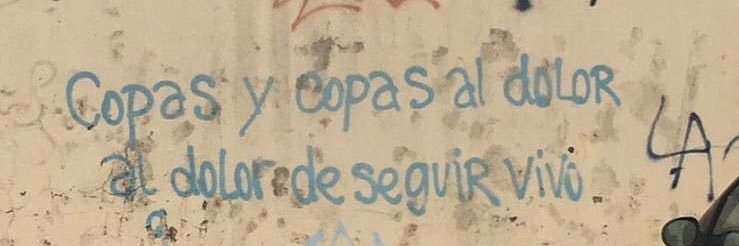 Copas y copas al dolor
al dolor de seguir vivo